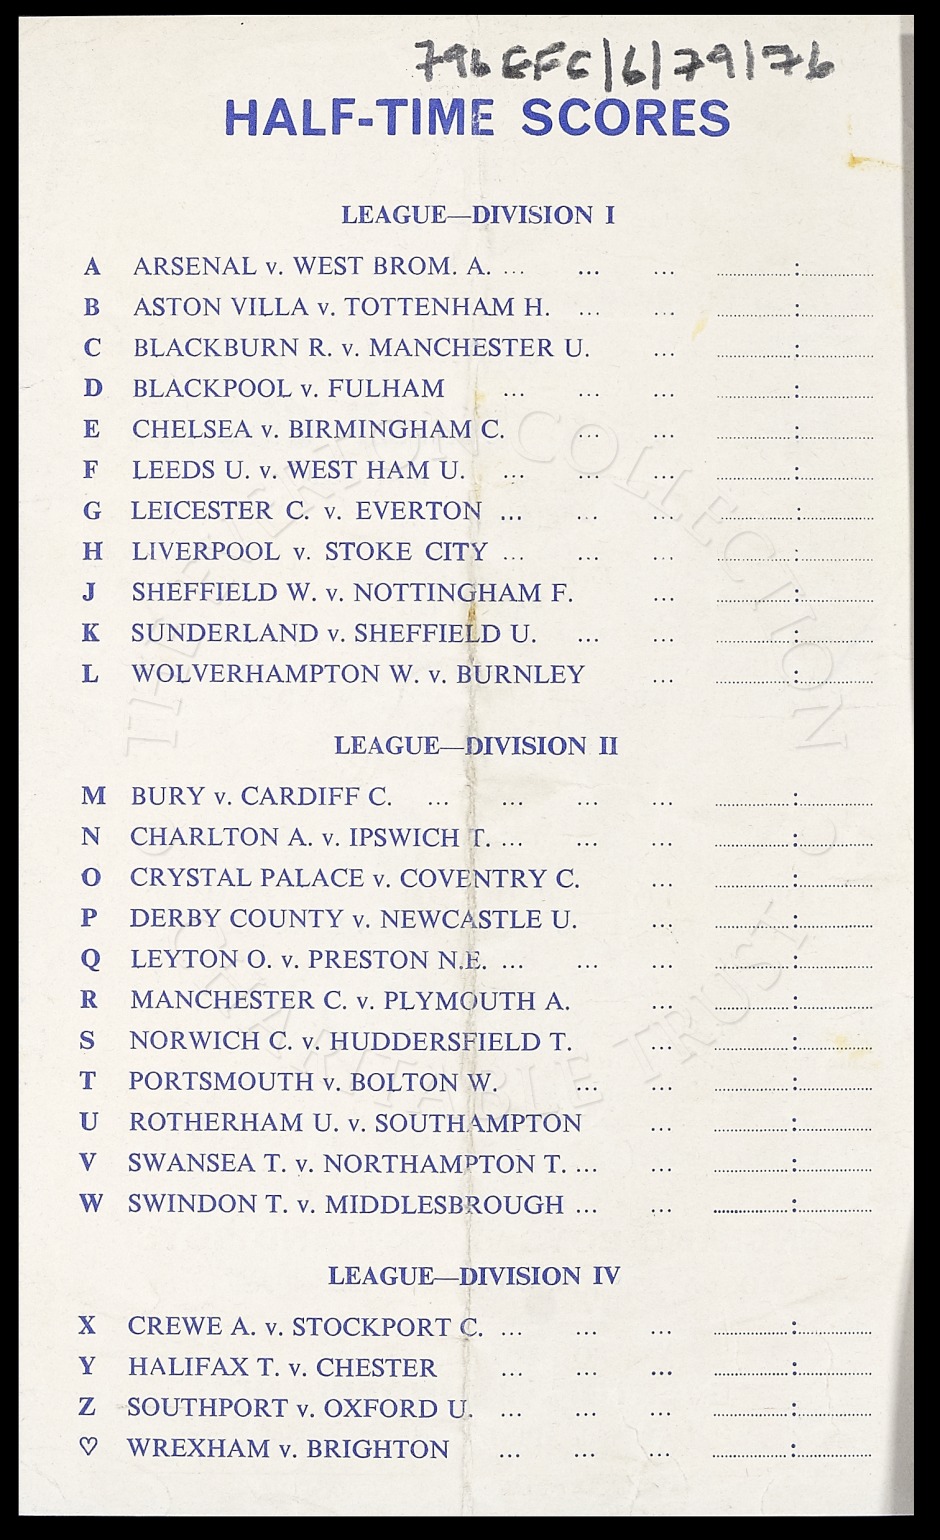 796 EFC/6/79/76
HALF-TIME SCORES
LEAGUE—DIVISION I
A ARSENAL v. WEST BROM. A. ... ... ... ............:............
B ASTON VILLA v. TOTTENHAM H. ... ... ............:............
C BLACKBURN R. v. MANCHESTER U. ... ............:............
D BLACKPOOL v. FULHAM ... ... ... ............:............
E CHELSEA v. BIRMINGHAM C. ... ... ............:............
F LEEDS U. v. WEST HAM U. ... ... ... ............:............
G LEICESTER C. v. EVERTON ... ... ... ............:............
H LIVERPOOL v. STOKE CITY ... ... ... ............:............
J SHEFFIELD W. v. NOTTINGHAM F. ... ............:............
K SUNDERLAND v. SHEFFIELD U. ... ... ............:............
L WOLVERHAMPTON W. v. BURNLEY ... ............:............
LEAGUE—DIVISION II
M BURY v. CARDIFF C. ... ... ... ... ............:............
N CHARLTON A. v. IPSWICH T. ... ... ... ............:............
O CRYSTAL PALACE v. COVENTRY C. ... ............:............
P DERBY COUNTY v. NEWCASTLE U. ... ............:............
Q LEYTON O. v. PRESTON N.E. ... ... ... ............:............
R MANCHESTER C. v. PLYMOUTH A. ... ............:............
S NORWICH C. v. HUDDERSFIELD T. ... ............:............
T PORTSMOUTH v. BOLTON W. ... ... ............:............
U ROTHERHAM U. v. SOUTHAMPTON ... ............:............
V SWANSEA T. v. NORTHAMPTON T. ... ... ............:............
W SWINDON T. v. MIDDLESBROUGH ... ... ............:............
LEAGUE—DIVISION IV
X CREWE A. v. STOCKPORT C. ... ... ... ............:............
Y HALIFAX T. v. CHESTER ... ... ... ............:............
Z SOUTHPORT v. OXFORD U. ... ... ... ............:............
♡ WREXHAM v. BRIGHTON ... ... ... ............:............
THE EVERTON COLLECTION
CHARITABLE TRUST